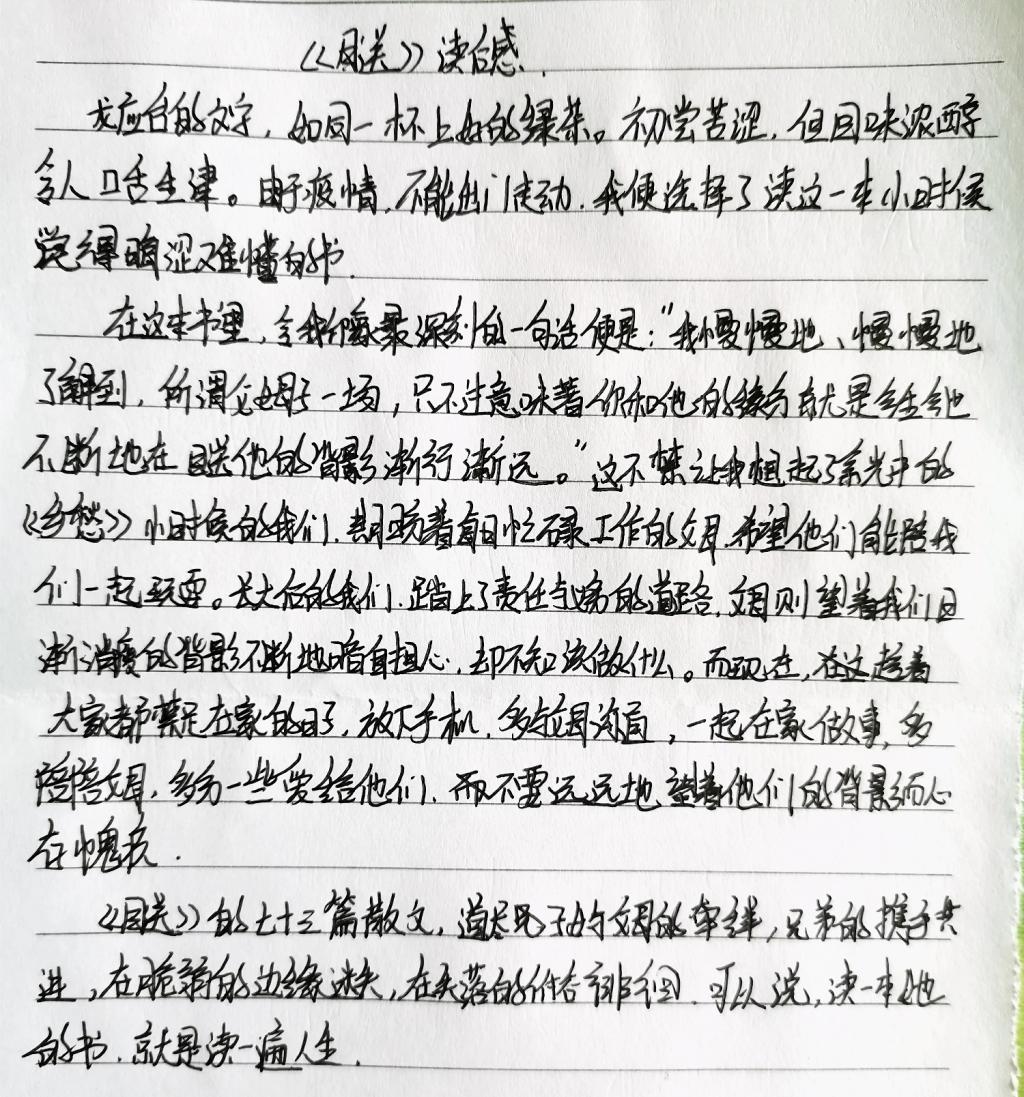 《目送》读后感.
龙应台的文字，如同一杯上好的绿茶。初尝苦涩，但回味浓醇
令人口舌生津。由于疫情，不能出门走动.我便选择了读这一本小时候
觉得晦涩难懂的书.
在这本书里，令我印象最深刻的一句话便是："我慢慢地、慢慢地
了解到，所谓父母子一场，只不过意味着你和他的缘分就是今生今世
不断地在目送他的背影渐行渐远。"这不禁让我想起了余光中的
《乡愁》小时候的我们.期盼着每日忙碌工作的父母.希望他们能陪我
们一起玩耍。长大后的我们.踏上了责任与的道路.父母则望着我们日
渐消瘦的背影不断地暗自担心.却不知该做什么。而现在，在这趁着
大家都禁足在家的日子，放下手机，多与父母沟通，一起在家做事，多
陪陪父母，多分一些爱给他们.而不要远远地望着他们的背影而心
存愧疚.
《目送》的七十三篇散文，道尽儿子与父母的牵绊，兄弟的携手共
进，在脆弱的边缘迷失，在失落的徘徊.可以说，读一本她
的书.就是读一遍人生.